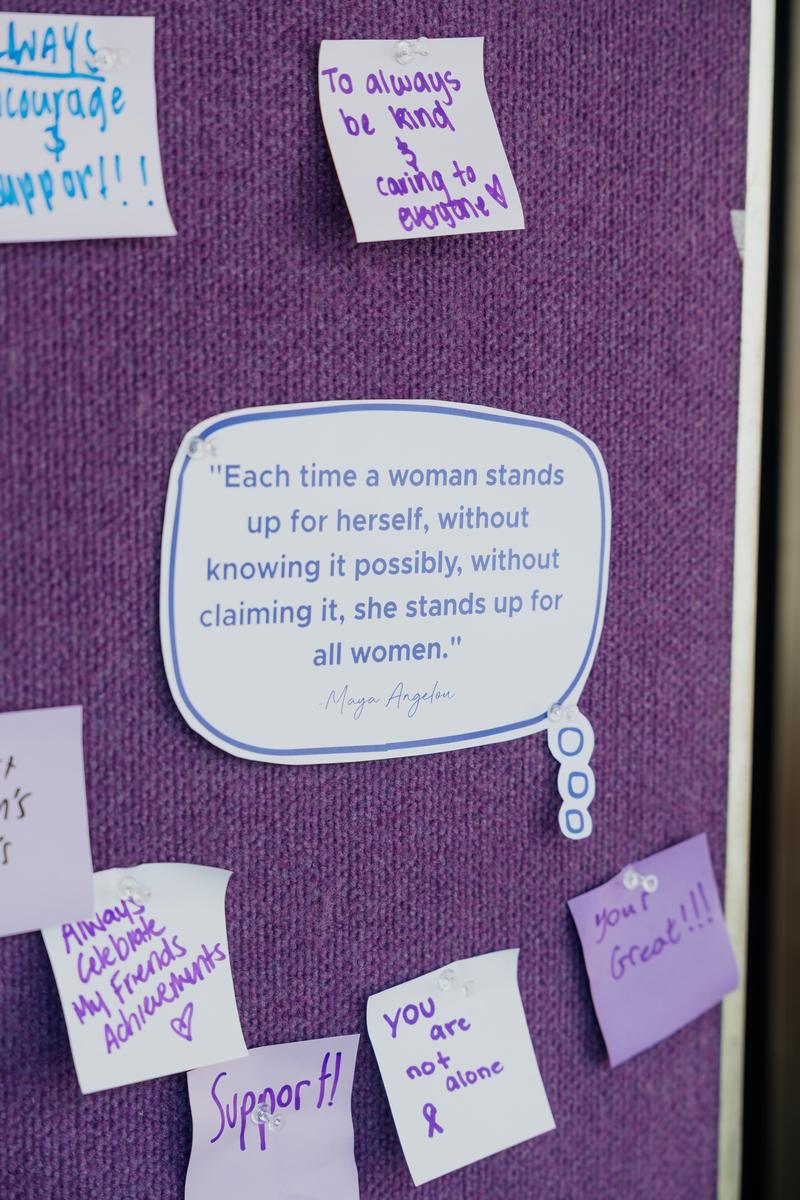 To always
be kind
&
caring to
everyone
support!!
"Each time a woman stands
up for herself, without
knowing it possibly, without
claiming it, she stands up for
all women."
-Maya Angelou
Always
Celebrate
My Friends
Achievements
Support!
YOU
are
not
alone
your
Great!!!